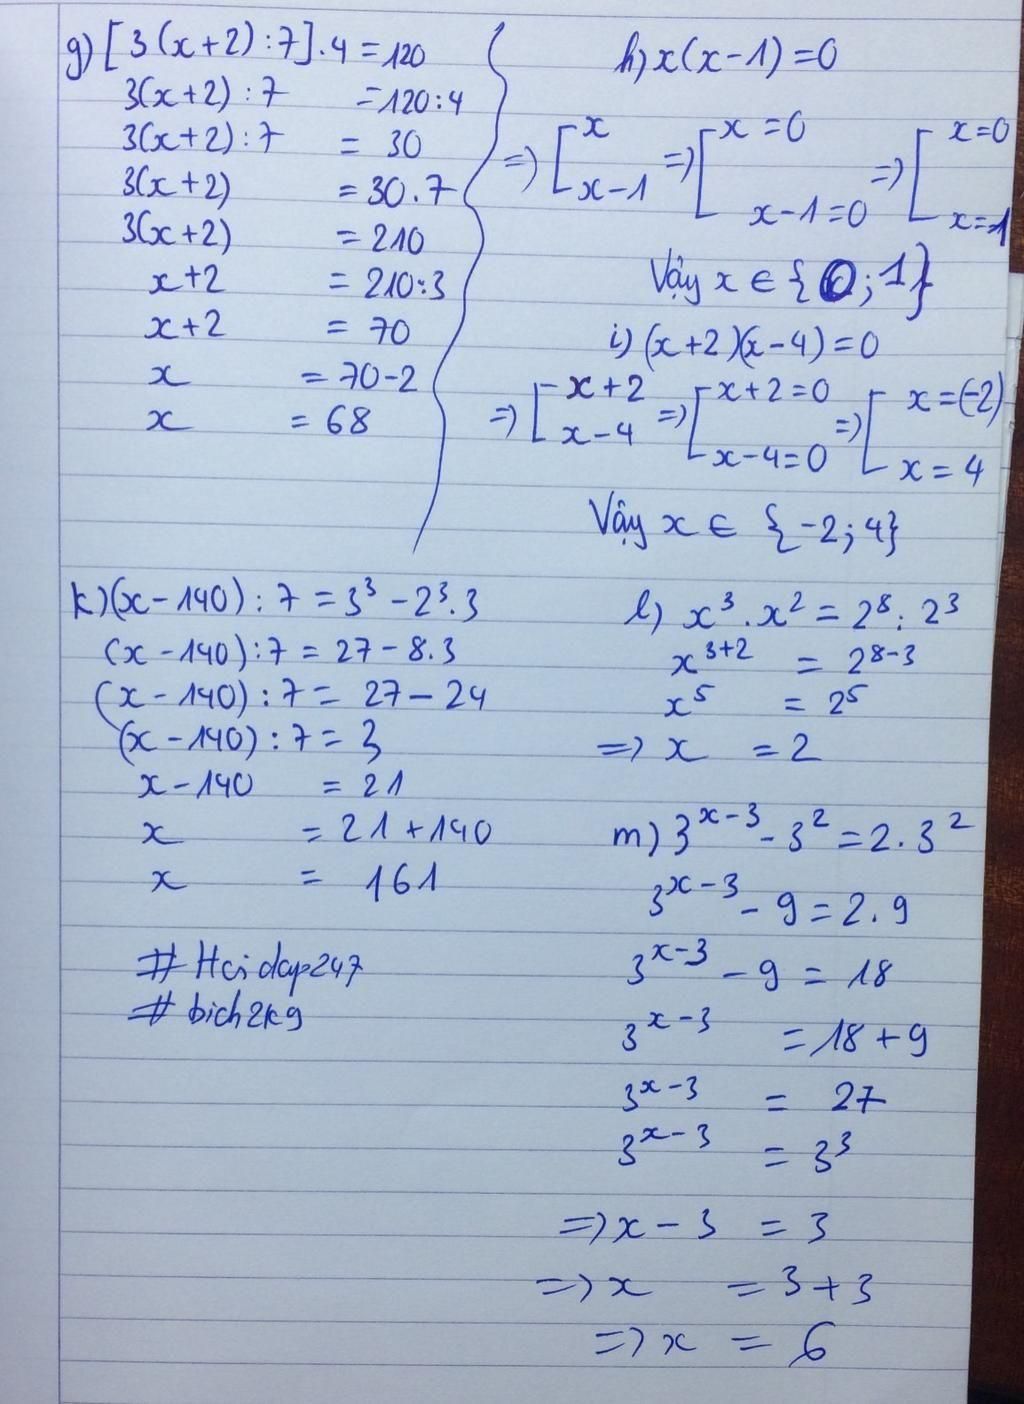 g) [3(x+2):7].4 = 120
3(x+2):7 = 120:4
3(x+2):7 = 30
3(x+2) = 30.7
3(x+2) = 210
x+2 = 210:3
x+2 = 70
x = 70-2
x = 68
h) x(x-1)=0
=> [x x-1 => [x=0 x-1=0 => [x=0 x=1
Vậy x ∈ {0;1}
i) (x+2)(x-4)=0
=> [x+2 x-4 => [x+2=0 x-4=0 => [x=(-2) x=4
Vậy x ∈ {-2;4}
k) (x-140):7 = 3³ - 2³.3
(x-140):7 = 27-8.3
(x-140):7 = 27-24
(x-140):7 = 3
x-140 = 21
x = 21+140
x = 161
# Hoidap247
# bich2k9
l) x³.x² = 2⁸:2³
x³⁺² = 2⁸⁻³
x⁵ = 2⁵
=> x = 2
m) 3^(x-3) - 3² = 2.3²
3^(x-3) - 9 = 2.9
3^(x-3) - 9 = 18
3^(x-3) = 18+9
3^(x-3) = 27
3^(x-3) = 3³
=> x-3 = 3
=> x = 3+3
=> x = 6